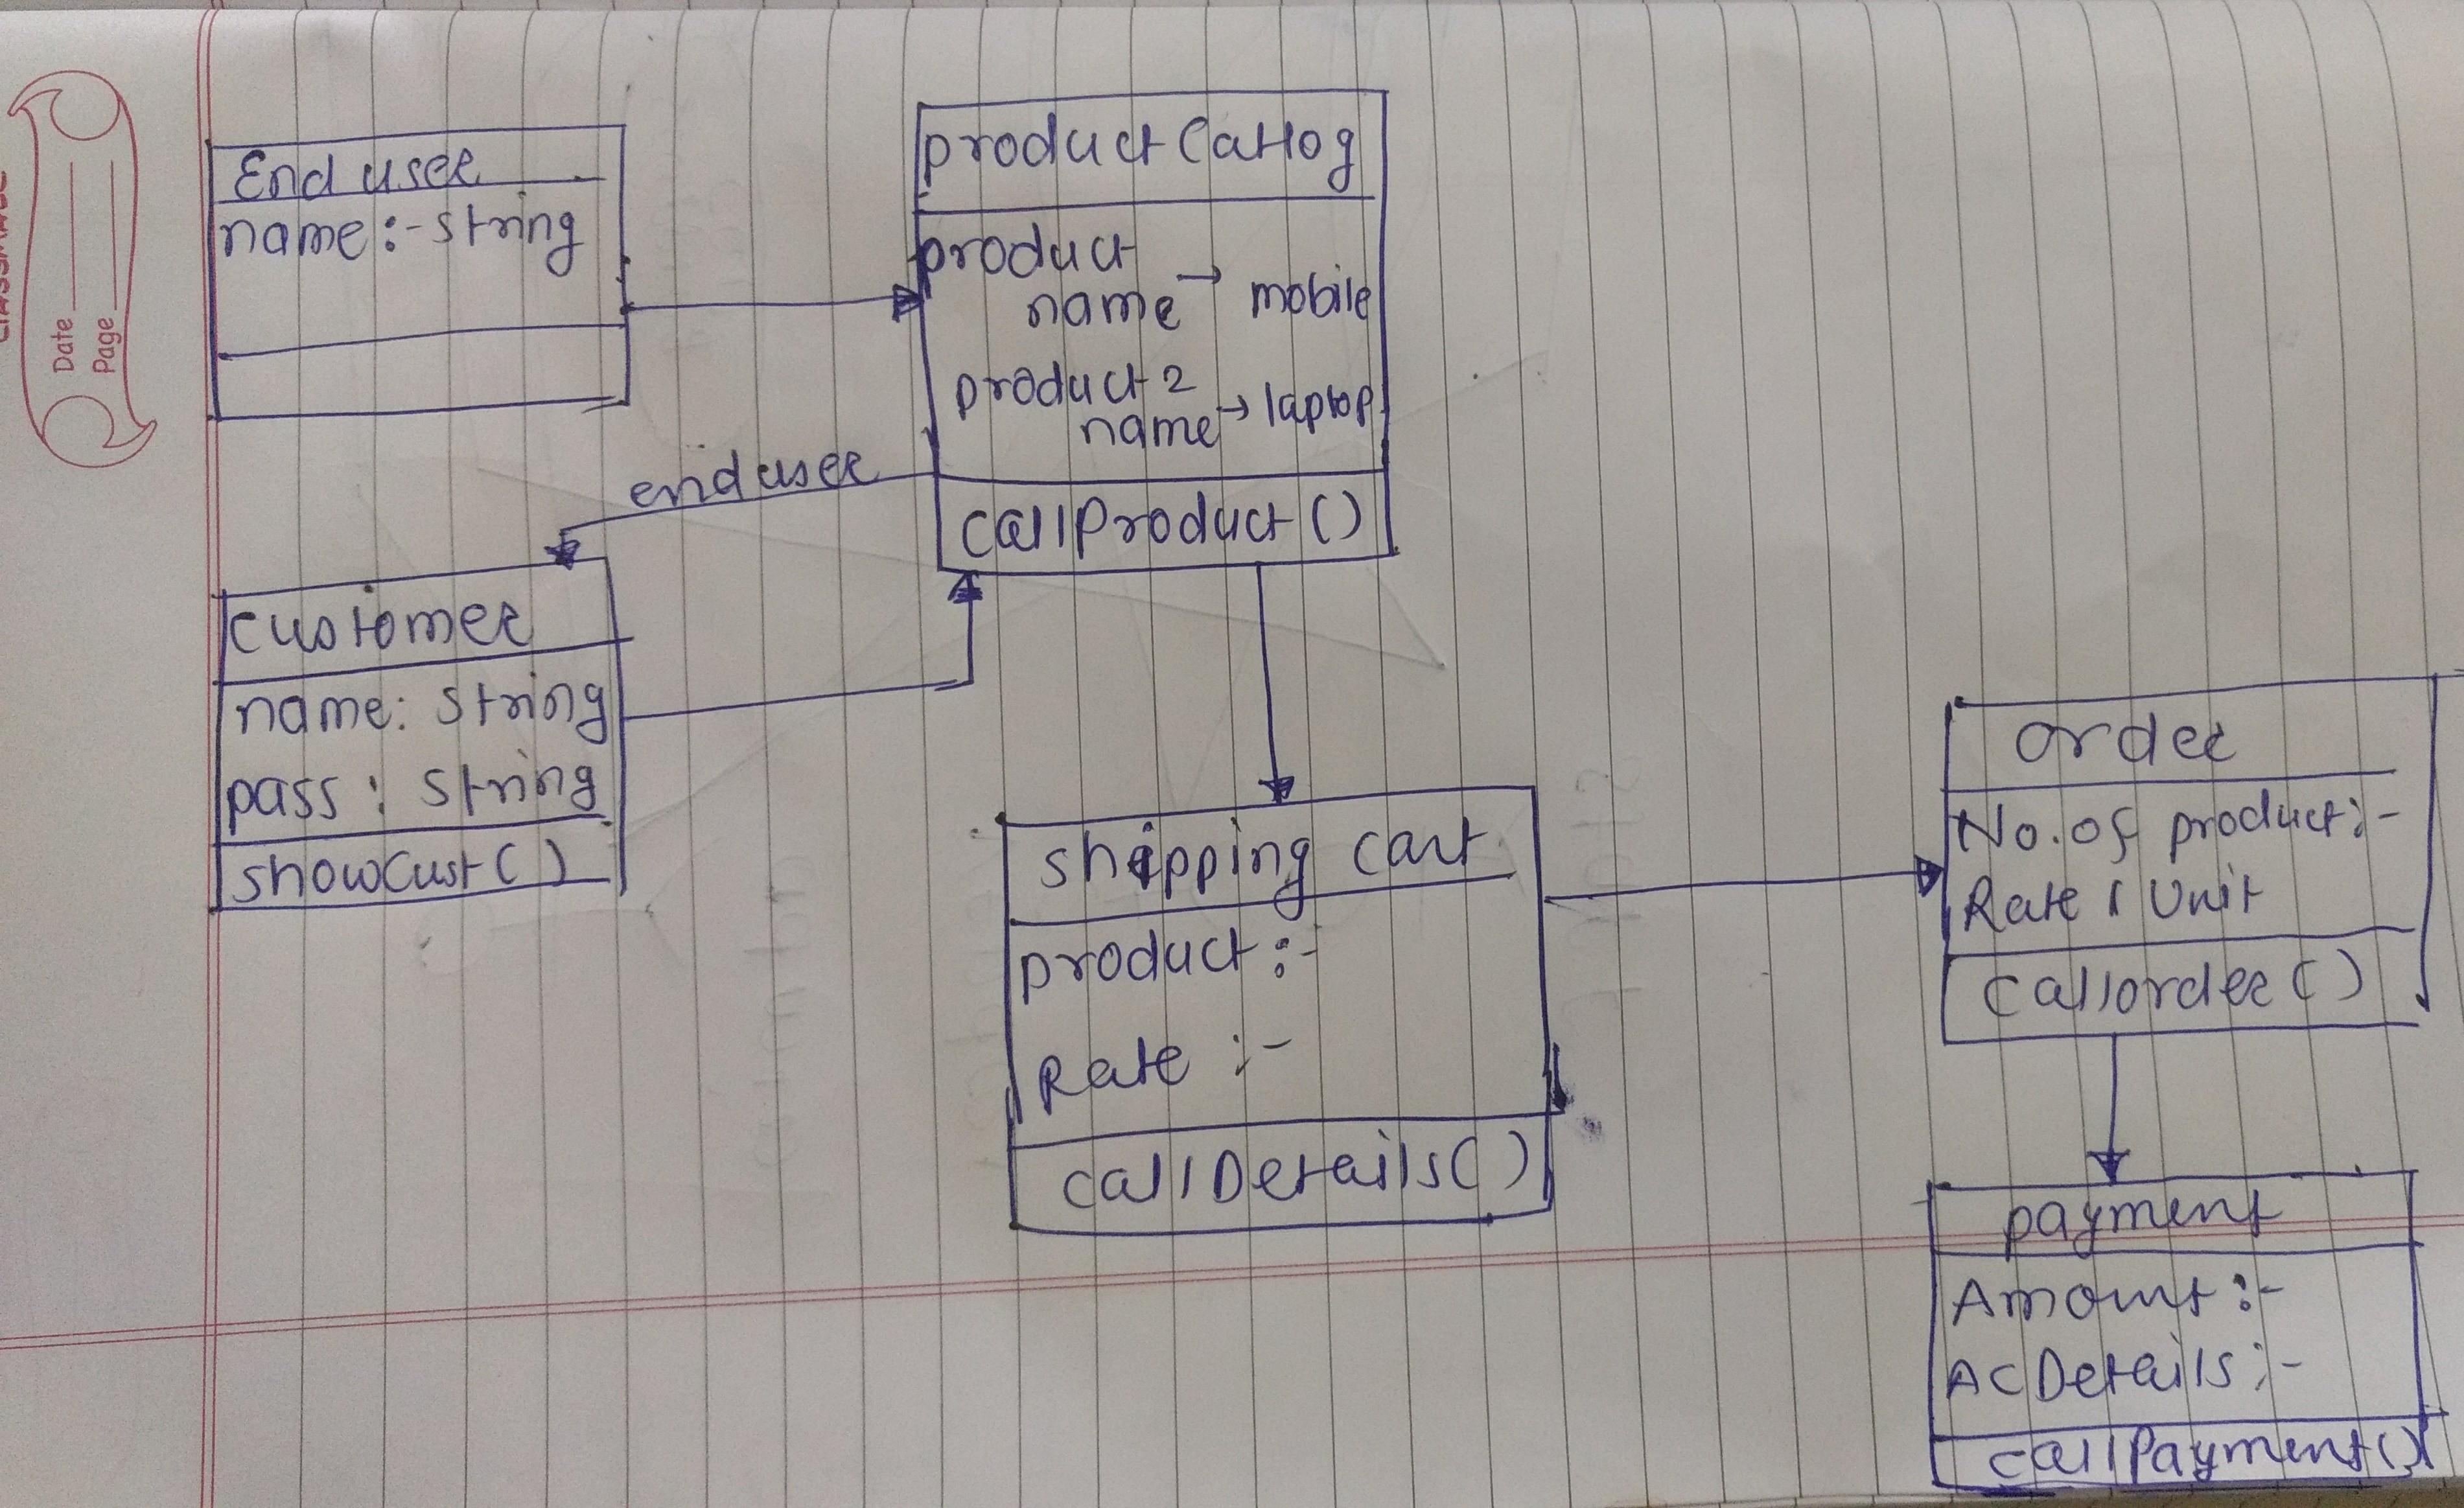 Date
Page
End user
name:- string
product Catlog
product
name → mobile
product 2
name → laptop
callProduct ()
end user
customer
name: string
pass : string
showCust ( )
shipping cart
product :-
Rate :-
callDetails( )
order
No. of product:-
Rate / Unit
callorder ( )
payment
Amount :-
AC Details :-
callPayment()